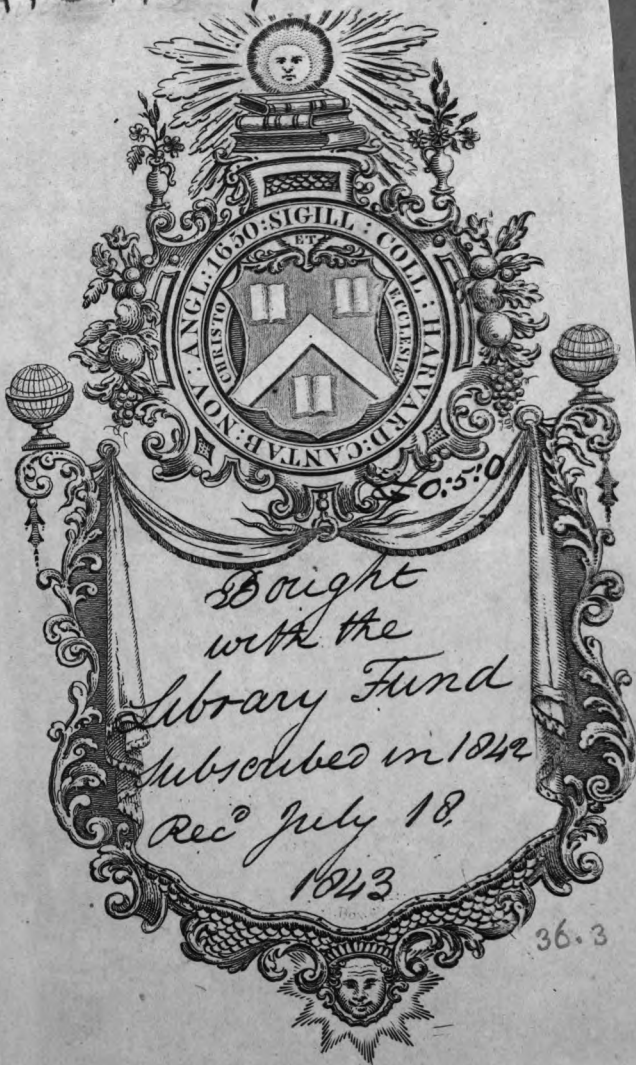 SIGILL : COLL : HARVARD : CANTAB : NOV : ANGL : 1650 :
CHRISTO ET ECCLESIÆ
£ 0:5:0
Bought
with the
Library Fund
subscribed in 1842
Recd July 18.
1843
36.3